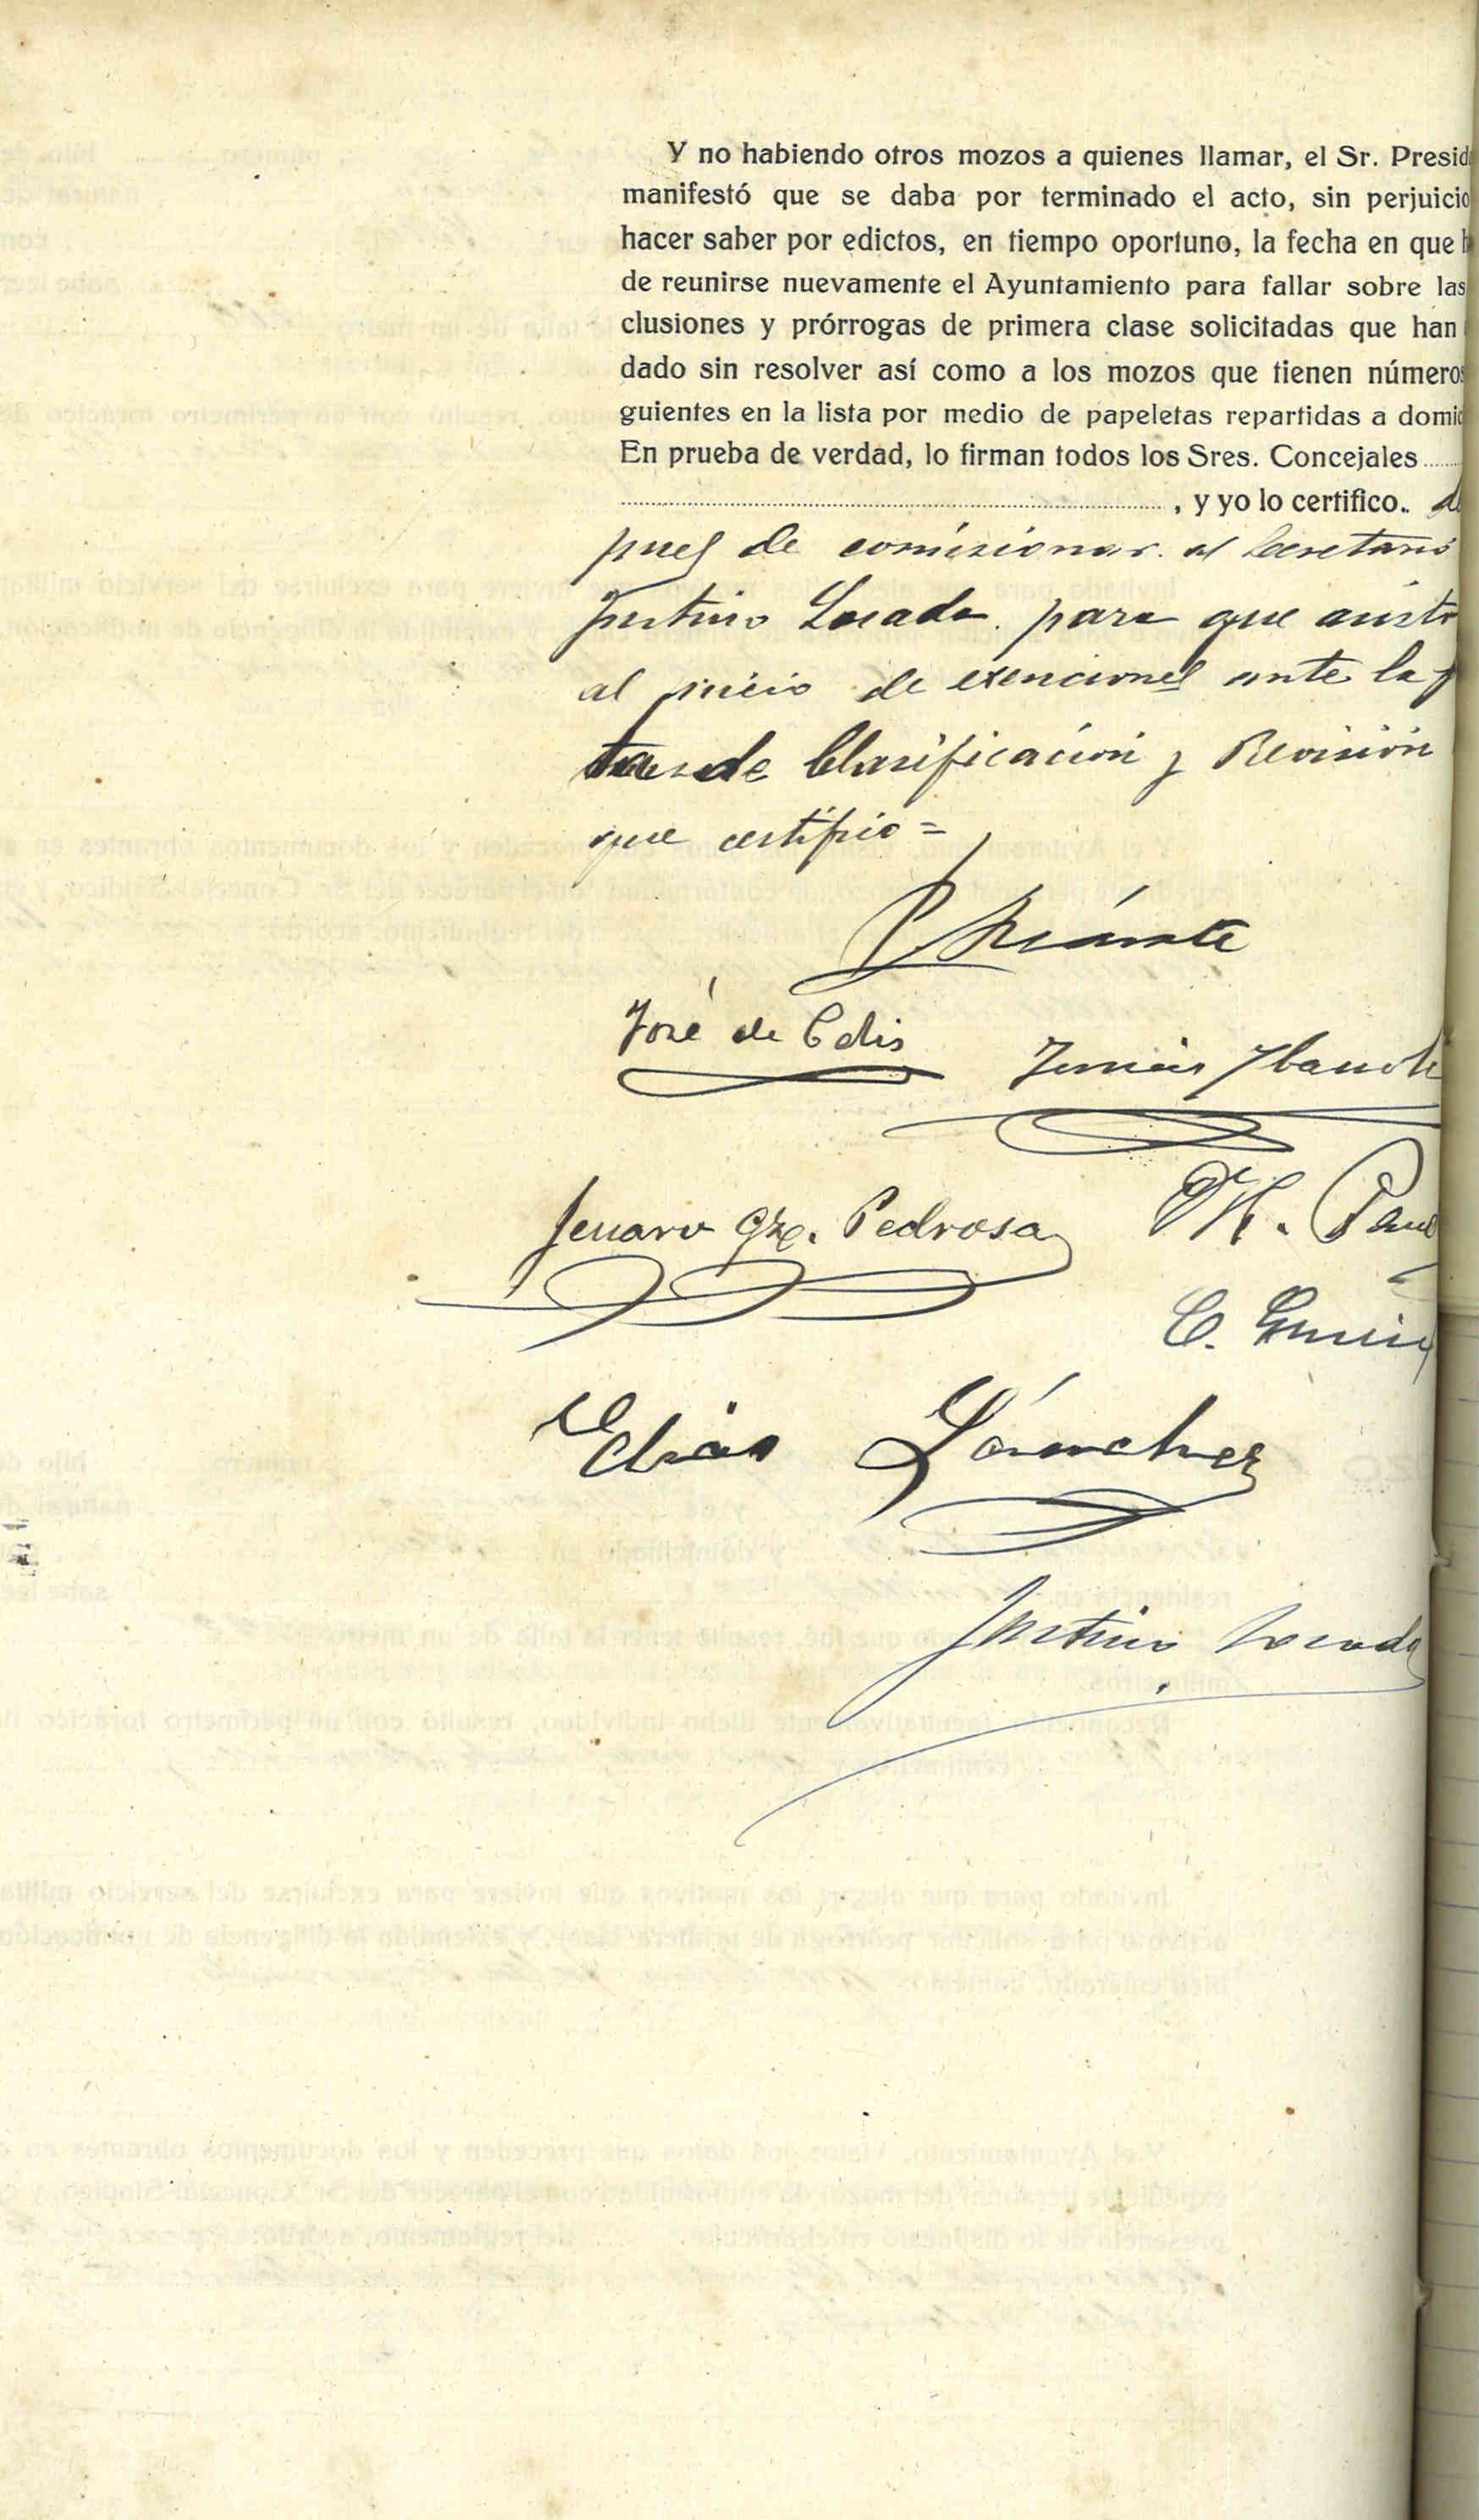 Y no habiendo otros mozos a quienes llamar, el Sr. Presid
manifestó que se daba por terminado el acto, sin perjuicio
hacer saber por edictos, en tiempo oportuno, la fecha en que h
de reunirse nuevamente el Ayuntamiento para fallar sobre las
clusiones y prórrogas de primera clase solicitadas que han
dado sin resolver así como a los mozos que tienen números
guientes en la lista por medio de papeletas repartidas a domic
En prueba de verdad, lo firman todos los Sres. Concejales
, y yo lo certifico. de
pues de comisionar al Secretario
Justino Losada para que asista
al juicio de exenciones ante la J
ta de Clasificación y Revisión
que certifico =
José de Celis
Genaro Gze. Pedrosa
Elías Sánchez
Justino Losada